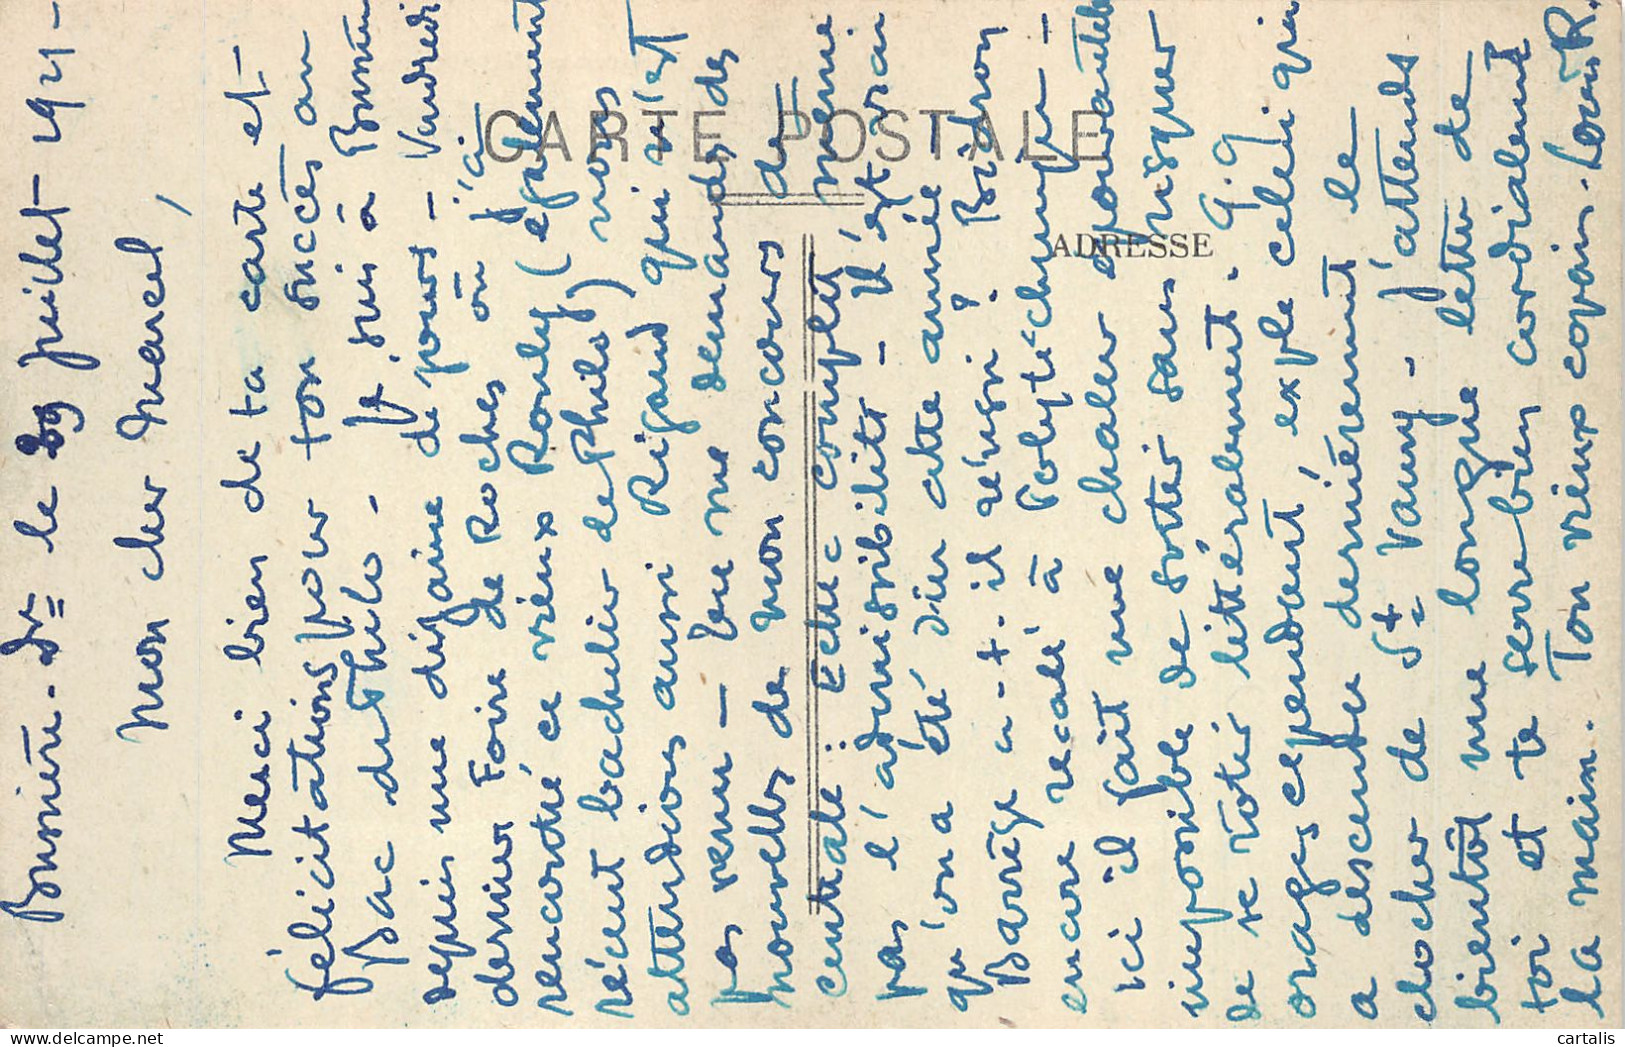 Bussière. Dr= le 29 juillet 1921 -
Mon cher Marcel,
Merci bien de ta carte et -
félicitations pour ton succès au
Bac de Philo - Je suis à
depuis une dizaine de jours - Vendredi
dernier Foire de Roches où j'ai
rencontré ce vieux Rouly (également
récent bachelier de Philo) nous
attendions aussi Rigaud qui n'est
pas venu - Tu me demandes des
nouvelles de mon concours de
centrale : Echec complet même
pas l'admissibilité - Il est vrai
qu'on a été dur cette année !
Barrège a-t-il réussi ? Bidron
encore recalé à Polytechnique -
ici il fait une chaleur épouvantable
impossible de sortir sans risquer
de se rotir littéralement. Qq
orages cependant, exple celui qui
a descendu dernièrement le
clocher de St Vaury - J'attends
bientôt une longue lettre de
toi et te serre bien cordialement
la main. Ton vieux copain. Louis R.
CARTE POSTALE
ADRESSE
cartalis.com